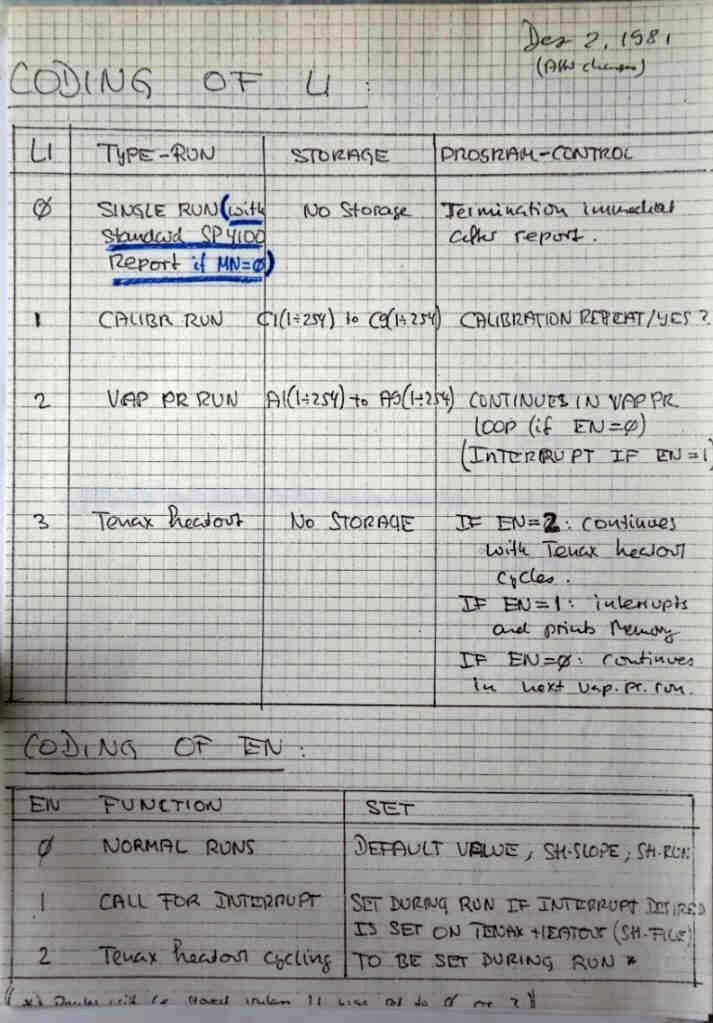 Dez 2, 1981
CODING OF LI :
LI TYPE-RUN STORAGE PROGRAM-CONTROL
Ø SINGLE RUN (with No Storage Termination immediat
Standard SP4100 after report.
Report if MN=Ø)
1 CALIBR RUN C1(1÷254) to C9(1÷254) CALIBRATION REPEAT/YES ?
2 VAP PR RUN A1(1÷254) to A9(1÷254) CONTINUES IN VAP PR
LOOP (if EN=Ø)
(INTERRUPT IF EN=1)
3 Tenax heatout No STORAGE IF EN=2: continues
with Tenax heatout
cycles.
IF EN=1: interrupts
and prints Memory
IF EN=Ø: continues
in next vap.pr. run.
CODING OF EN :
EN FUNCTION SET
Ø NORMAL RUNS DEFAULT VALUE, SH-SLOPE, SH-RUN
1 CALL FOR INTERRUPT SET DURING RUN IF INTERRUPT DESIRED
IS SET ON TENAX HEATOUT (SH-FILE)
2 Tenax heatout cycling TO BE SET DURING RUN *